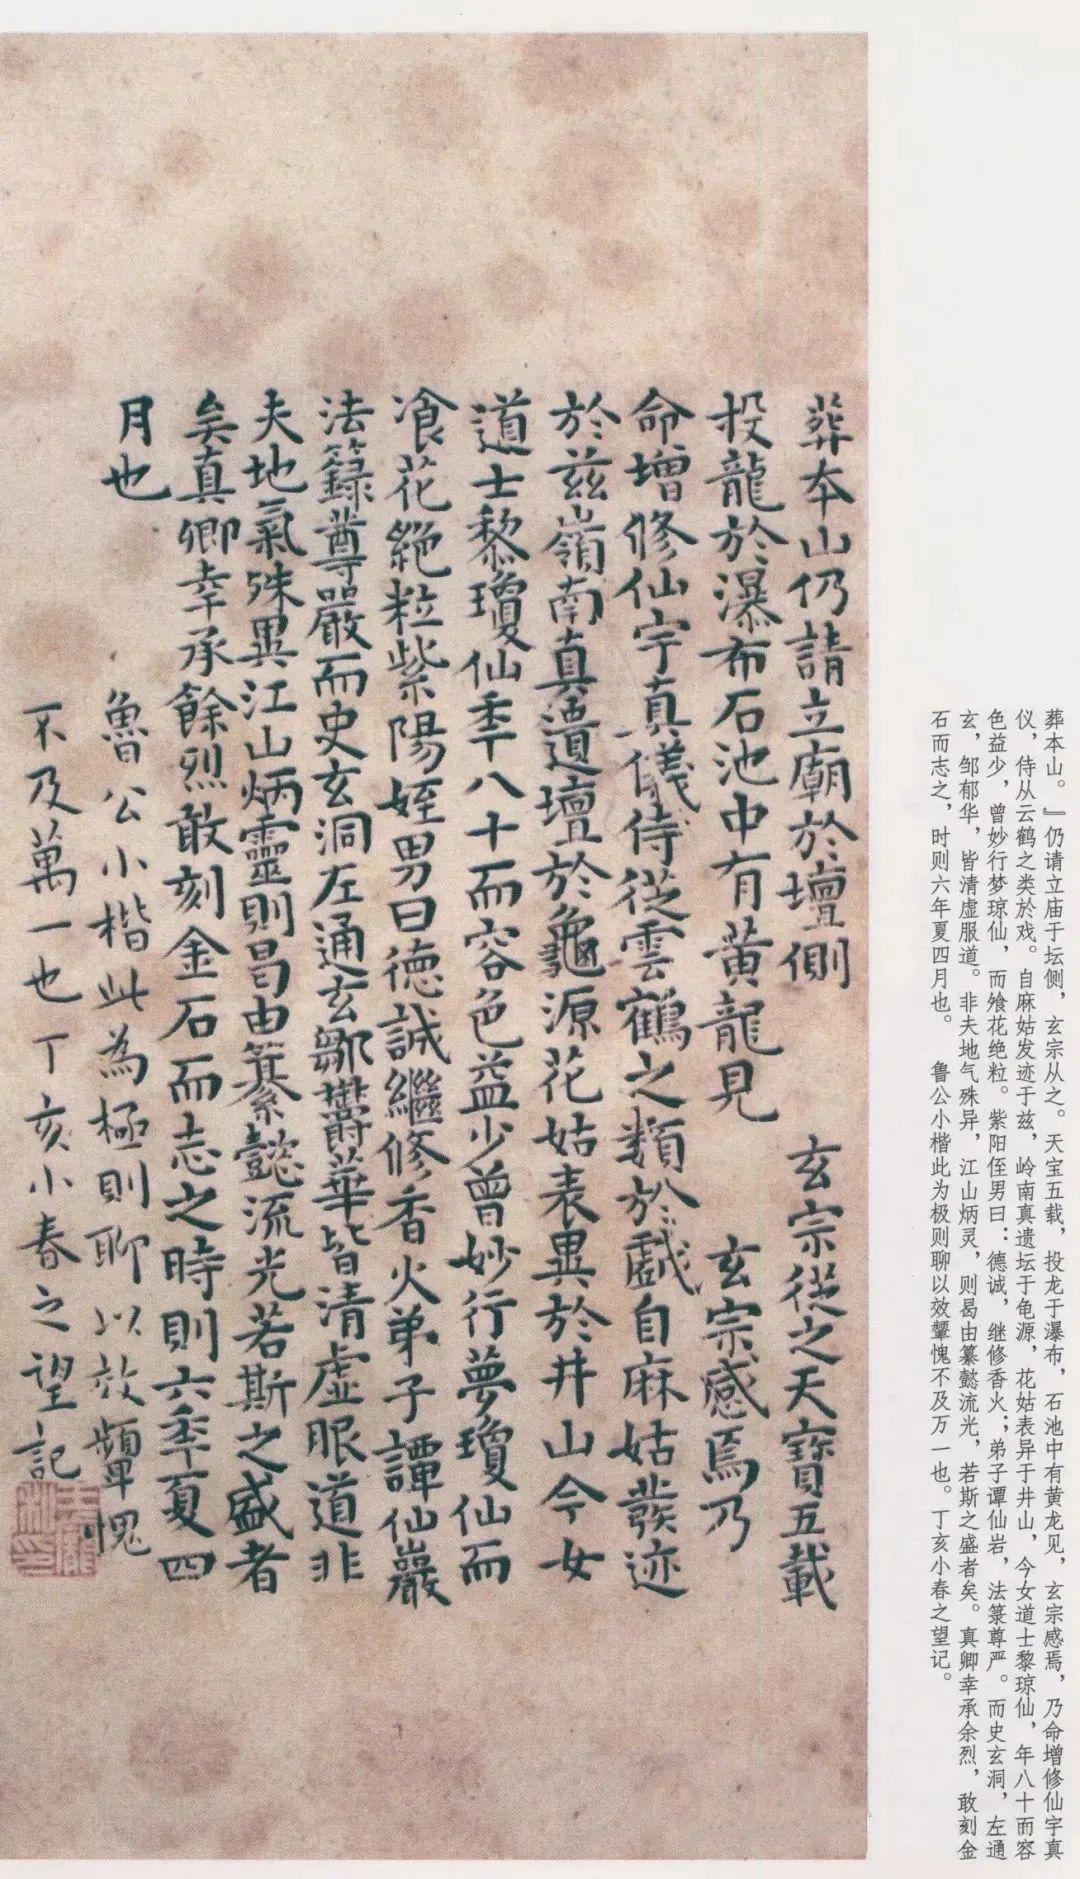 葬本山。』仍请立庙于坛侧，玄宗从之。天宝五载，投龙于瀑布，石池中有黄龙见，玄宗感焉，乃命增修仙宇真
仪，侍从云鹤之类於戏。自麻姑发迹于兹，岭南真遗坛于龟源，花姑表异于井山，今女道士黎琼仙，年八十而容
色益少，曾妙行梦琼仙，而飧花绝粒。紫阳侄男曰：德诚，继修香火；弟子谭仙岩，法箓尊严。而史玄洞，左通
玄，邹郁华，皆清虚服道。非夫地气殊异，江山炳灵，则曷由纂懿流光，若斯之盛者矣。真卿幸承余烈，敢刻金
石而志之，时则六年夏四月也。　鲁公小楷此为极则聊以效颦愧不及万一也。丁亥小春之望记。
葬本山仍請立廟於壇側　玄宗從之天寶五載
投龍於瀑布石池中有黄龍見　玄宗感焉乃
命增修仙宇真儀侍從雲鶴之類於戲自麻姑發迹
於兹嶺南真遺壇於龜源花姑表異於井山今女
道士黎瓊仙年八十而容色益少曾妙行夢瓊仙而
飡花絶粒紫陽姪男曰德誠繼修香火弟子譚仙巖
法籙尊嚴而史玄洞左通玄鄒鬱華皆清虛服道非
夫地氣殊異江山炳靈則曷由纂懿流光若斯之盛者
矣真卿幸承餘烈敢刻金石而志之時則六年夏四
月也
魯公小楷此為極則聊以效顰愧
不及萬一也丁亥小春之望記